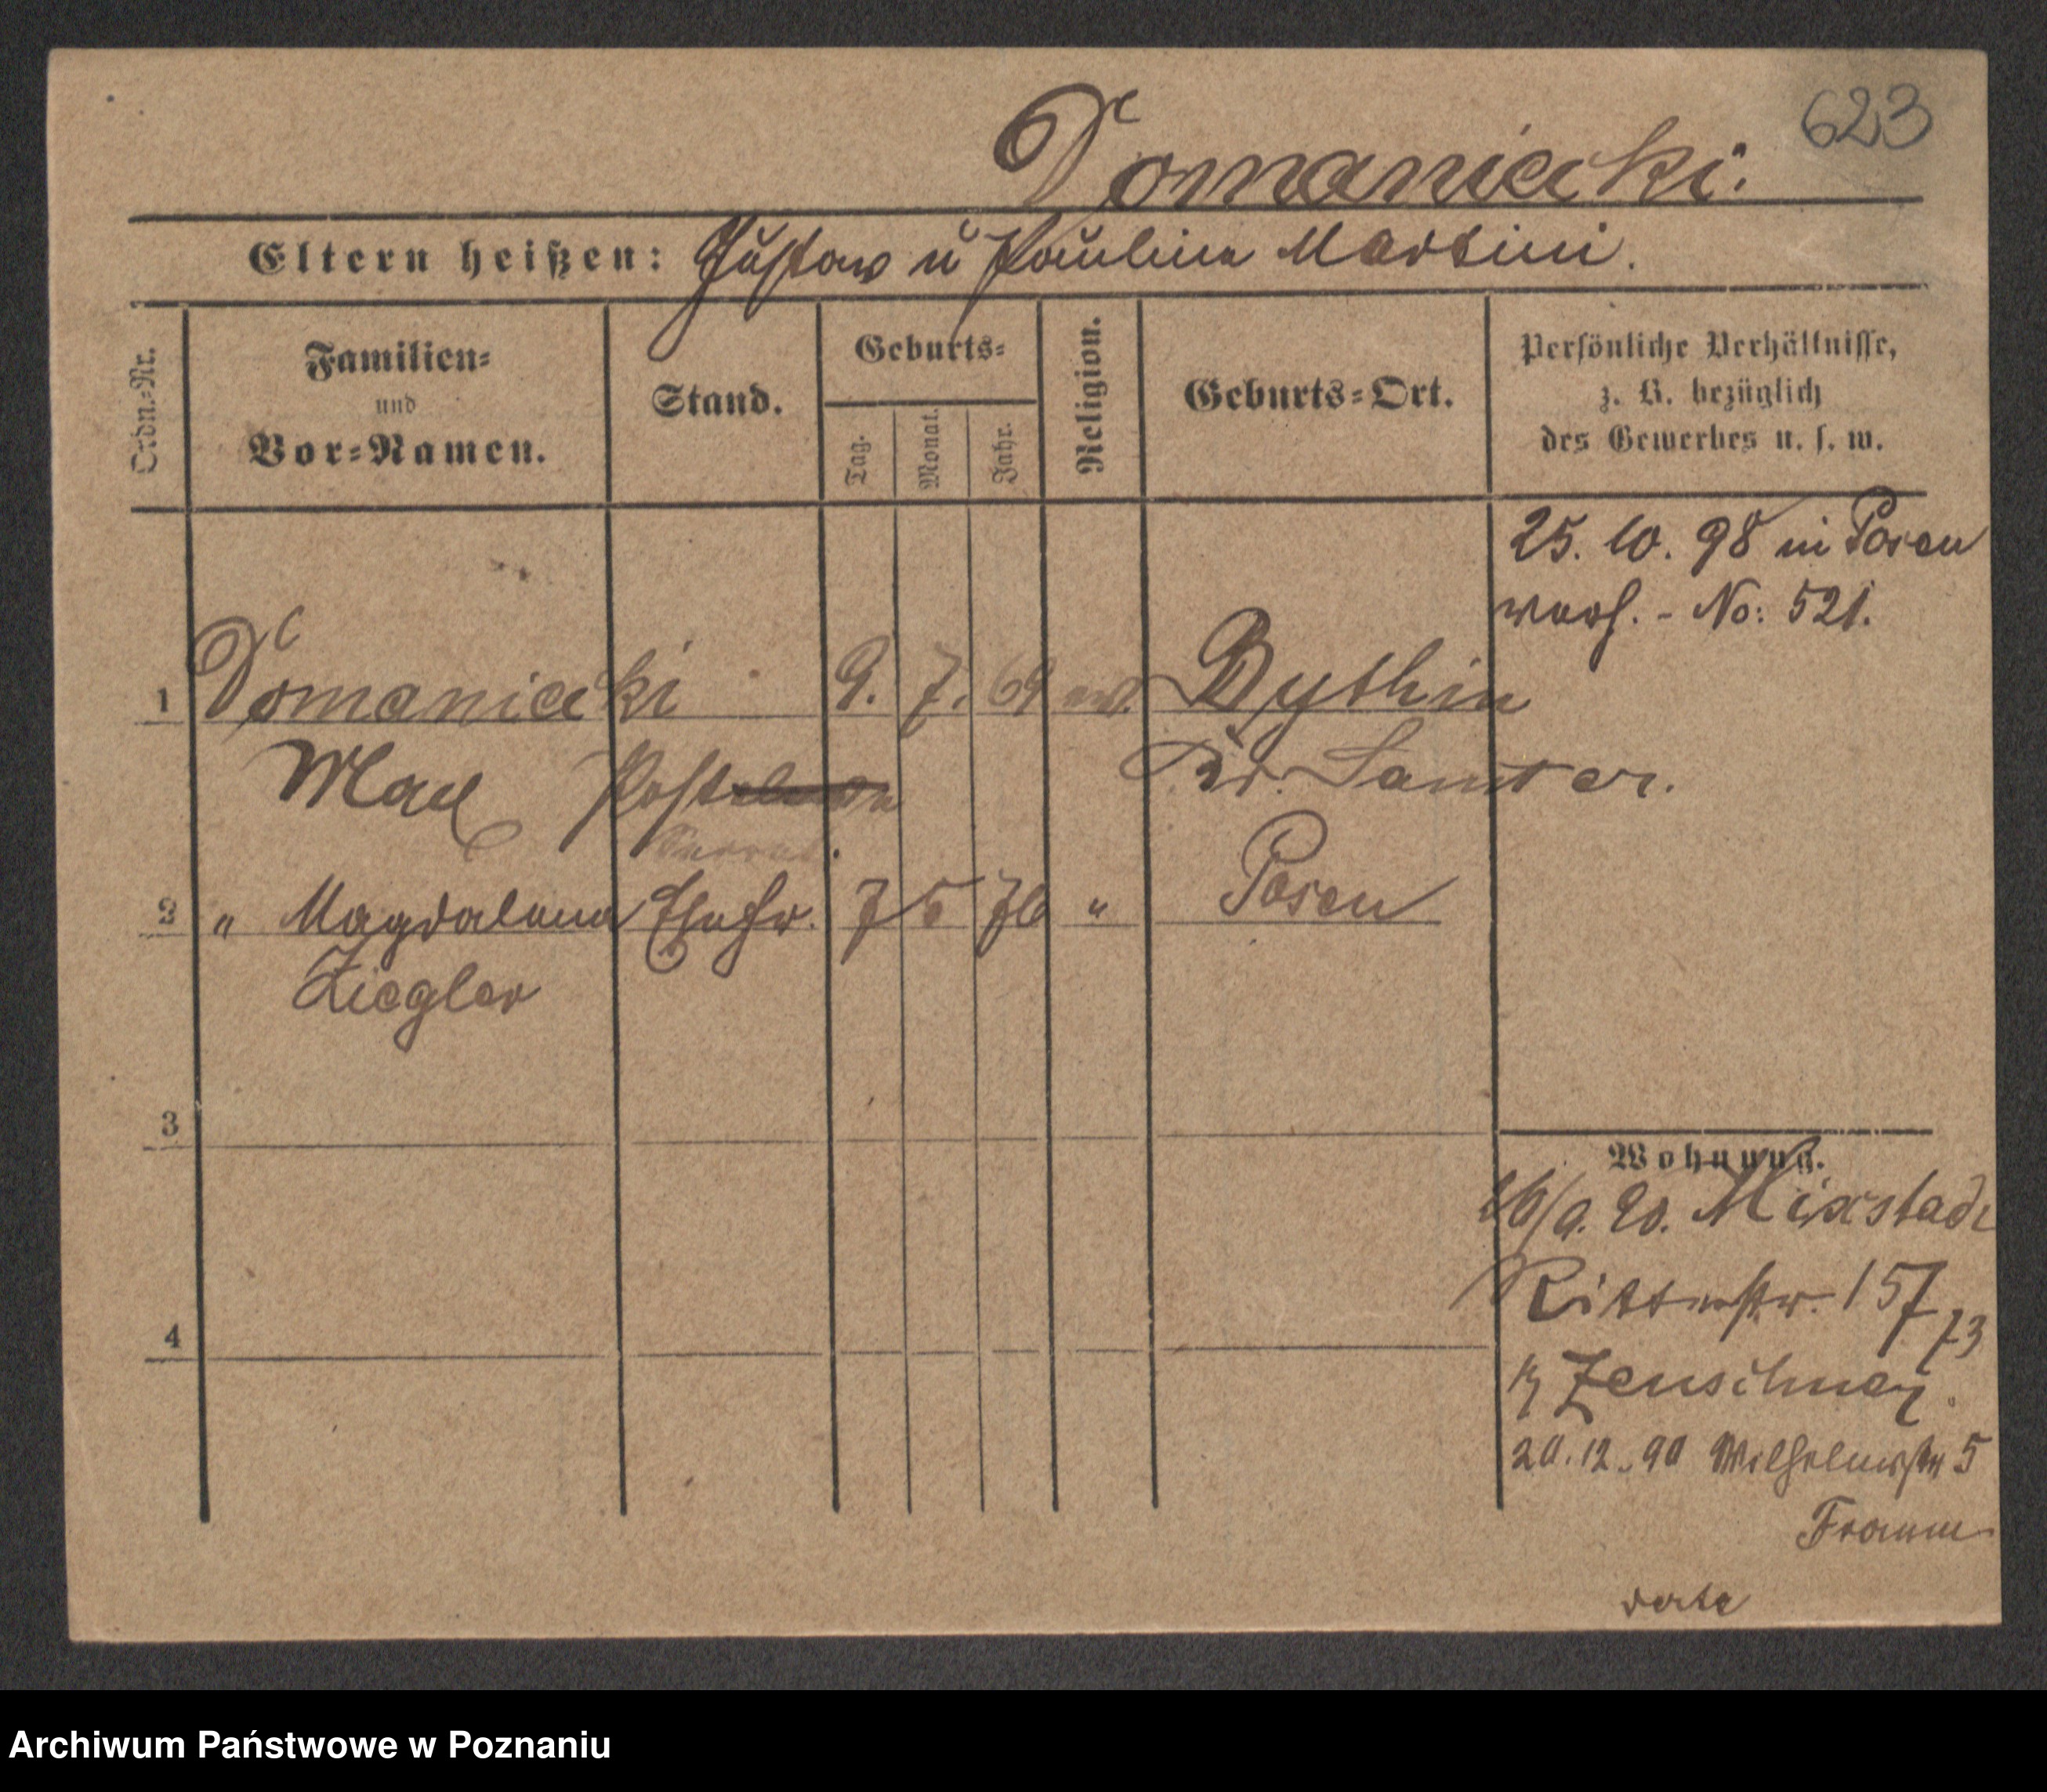 623
Domaniecki.
Eltern heißen: Gustav u Paulina Martini.
Ordn.-Nr.
Familien-
und
Vor-Namen.
Stand.
Geburts-
Tag.
Monat.
Jahr.
Religion.
Geburts-Ort.
Persönliche Verhältnisse,
z. B. bezüglich
des Gewerbes u. s. w.
25. 10. 98 in Posen
verh. - No: 521.
1 Domaniecki 9. 7. 69 ev. Bythin
Max Kr. Samter.
2 " Magdalena Ehefr. 7 5 76 " Posen
Ziegler
3
4
Wohnung.
26/9. 90. Mixstadt
Ritterstr. 157
73
Zenschner
20.12.90 Wilhelmstr 5
Framm